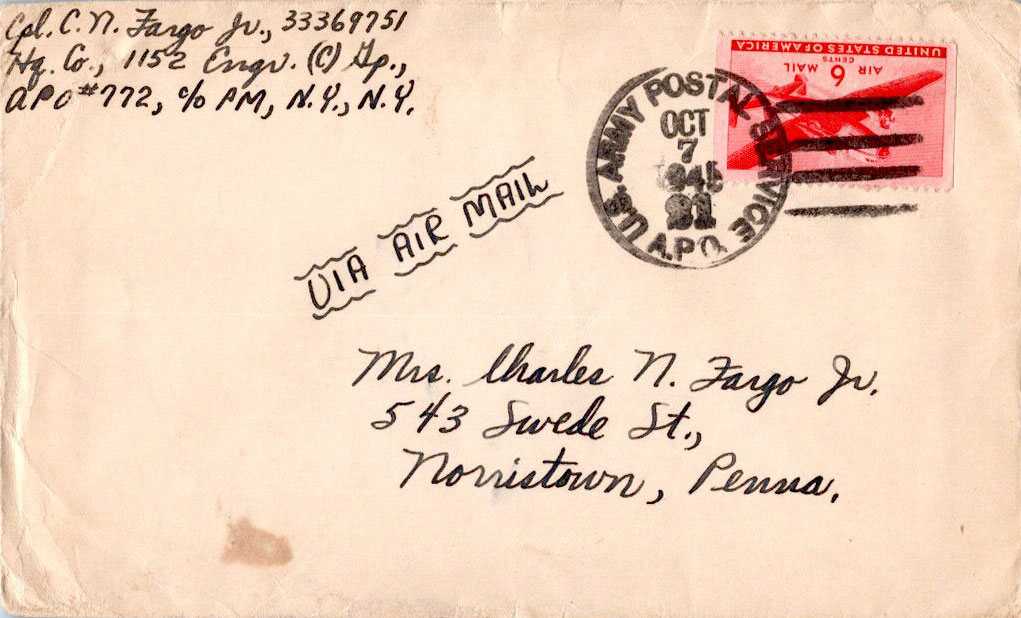 Cpl. C. N. Fargo Jr., 33369751
Hq. Co., 1152 Engr. (C) Gp.,
APO #772, c/o PM, N.Y., N.Y.
UNITED STATES OF AMERICA
6 CENTS
AIR MAIL
U.S. ARMY POSTAL SERVICE
OCT
7
1945
A.P.O.
VIA AIR MAIL
Mrs. Charles N. Fargo Jr.
543 Swede St.,
Norristown, Penna.